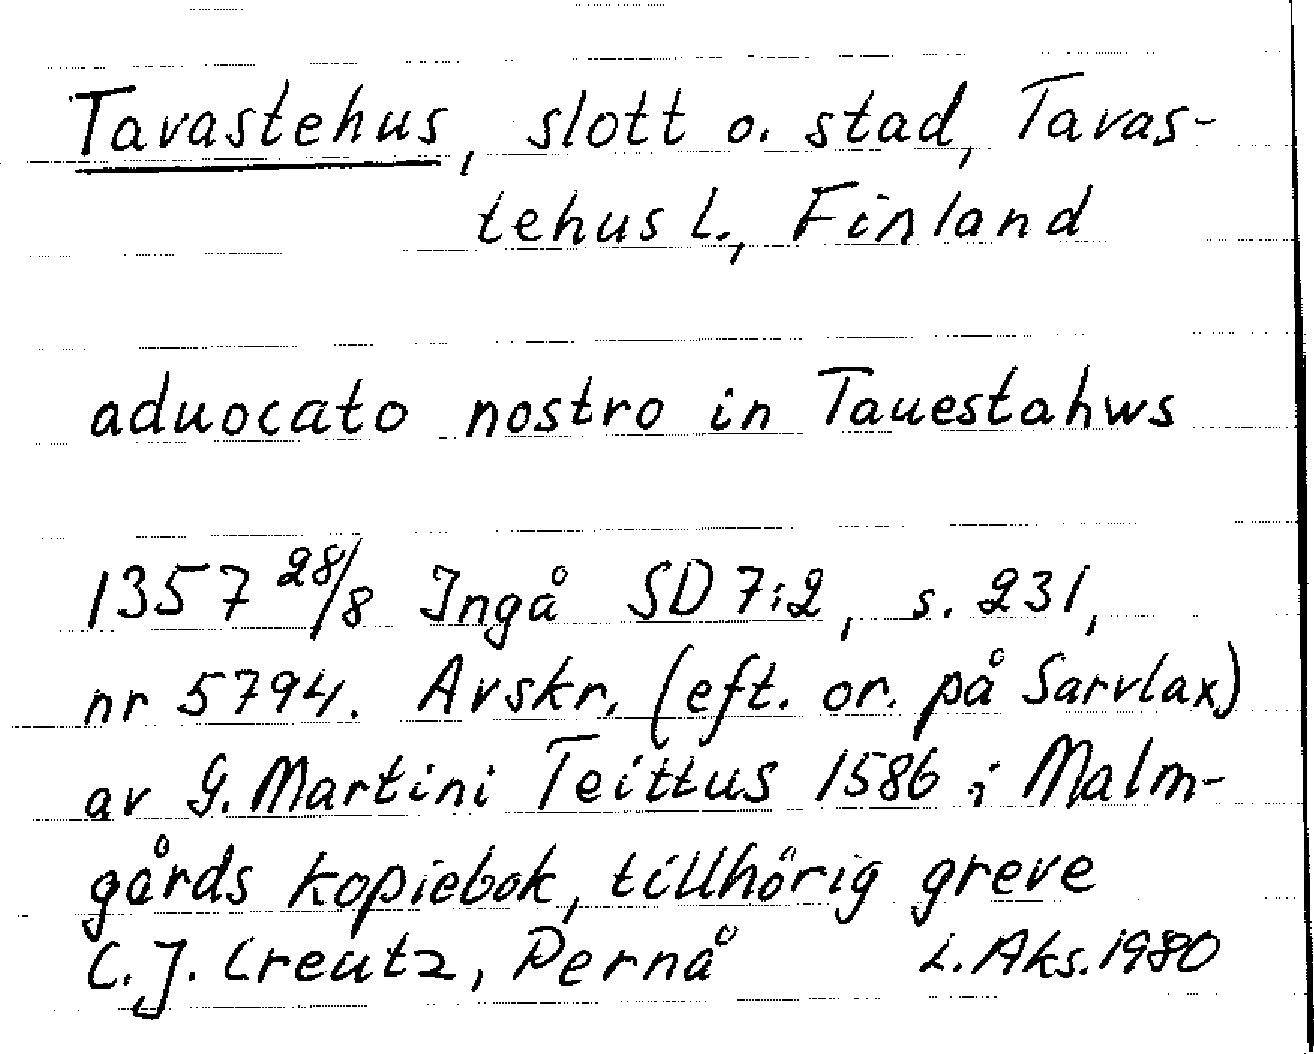 Tavastehus, slott o. stad, Tavas-
tehus L., Finland
aduocato nostro in Tauestahws
1357 28/8 Ingå SD 7:2, s. 231,
nr 5794. Avskr. (eft. or. på Sarvlax)
av G. Martini Teittus 1586 i Malm-
gårds kopiebok, tillhörig greve
C. J. Creutz, Pernå L. Aks. 1980